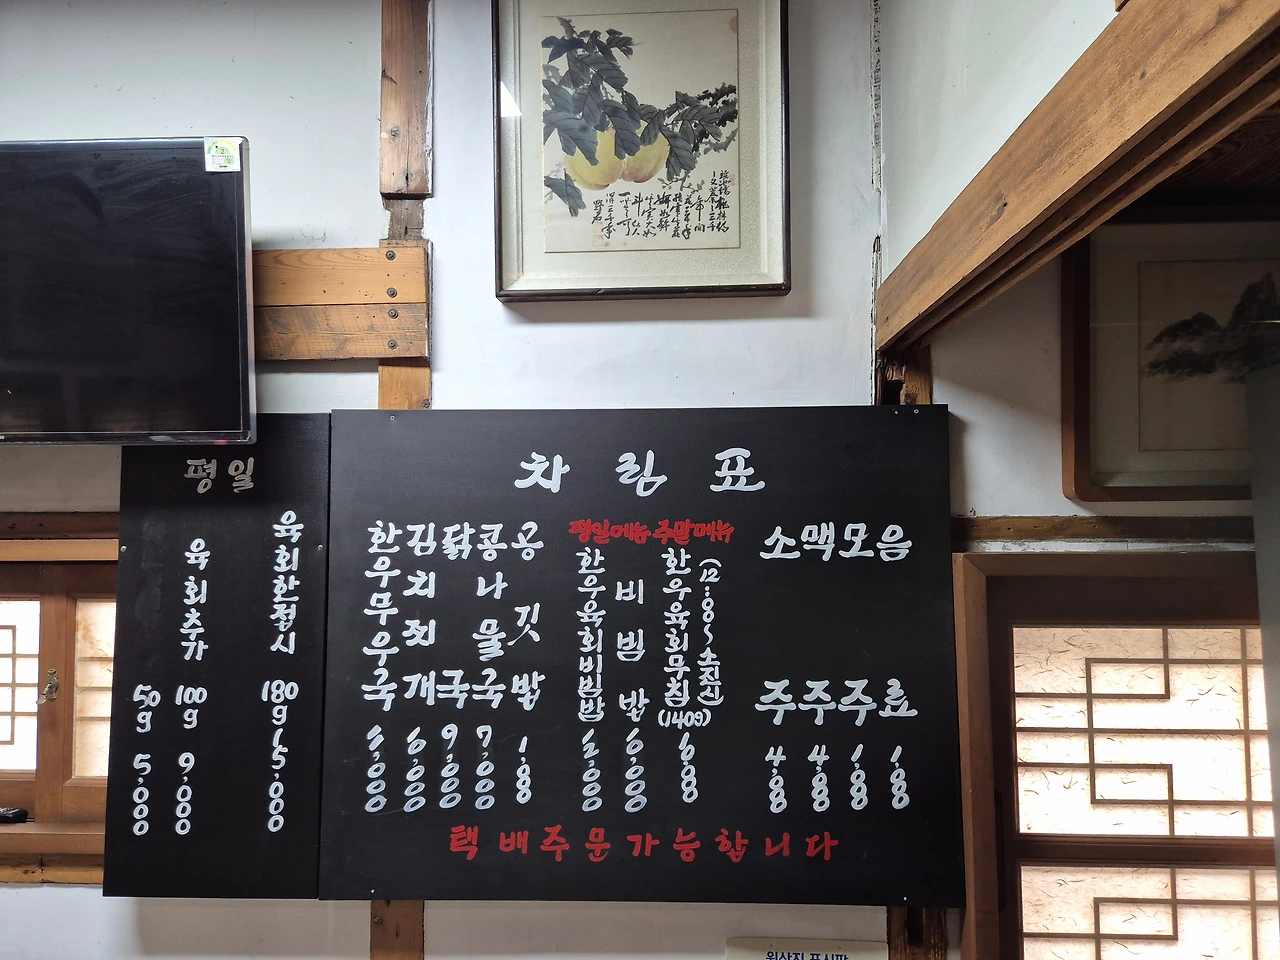 평일
50g 5,000
육회추가 100g 9,000
육회한접시 180g 15,000
차림표
한우무우국
김치찌개 6,000
닭국 9,000
콩나물국 7,000
공깃밥 1,000
평일메뉴
한우육회비빔밥
비빔밥 6,000
주말메뉴
한우육회무침(140g)
(12:00~소진시)
소주 4,000
맥주 4,000
모주 1,000
음료 1,000
택배주문가능합니다
원산지 표시판